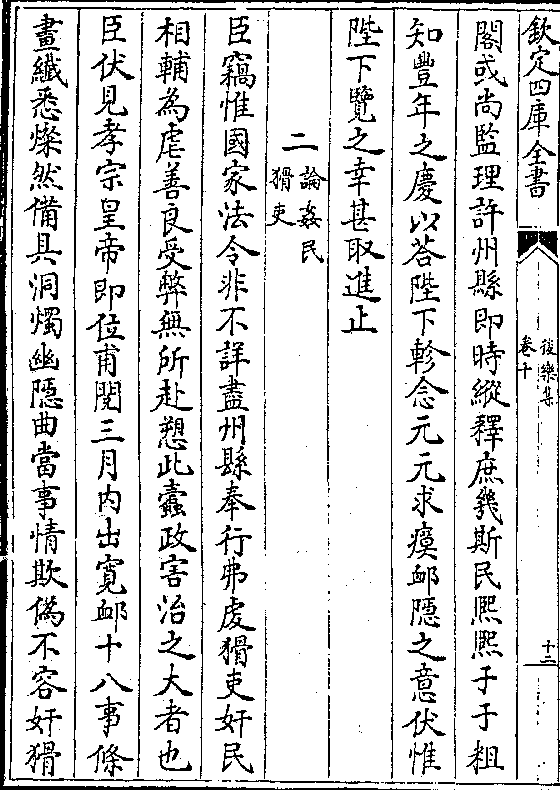 欽定四庫全書
後樂集
卷十
十二
閣或尚監理許州縣即時縱釋庶幾斯民熈熈于于粗
知豐年之慶以荅陛下軫念元元求瘼䘏隱之意伏惟
陛下覽之幸甚取進止
二論姦民
猾吏
臣竊惟國家法令非不詳盡州縣奉行弗䖍猾吏奸民
相輔為虐善良受弊無所赴愬此蠧政害治之大者也
臣伏見孝宗皇帝即位甫閱三月内出寛䘏十八事條
畫纎悉燦然備具洞燭幽隠曲當事情欺偽不容奸猾